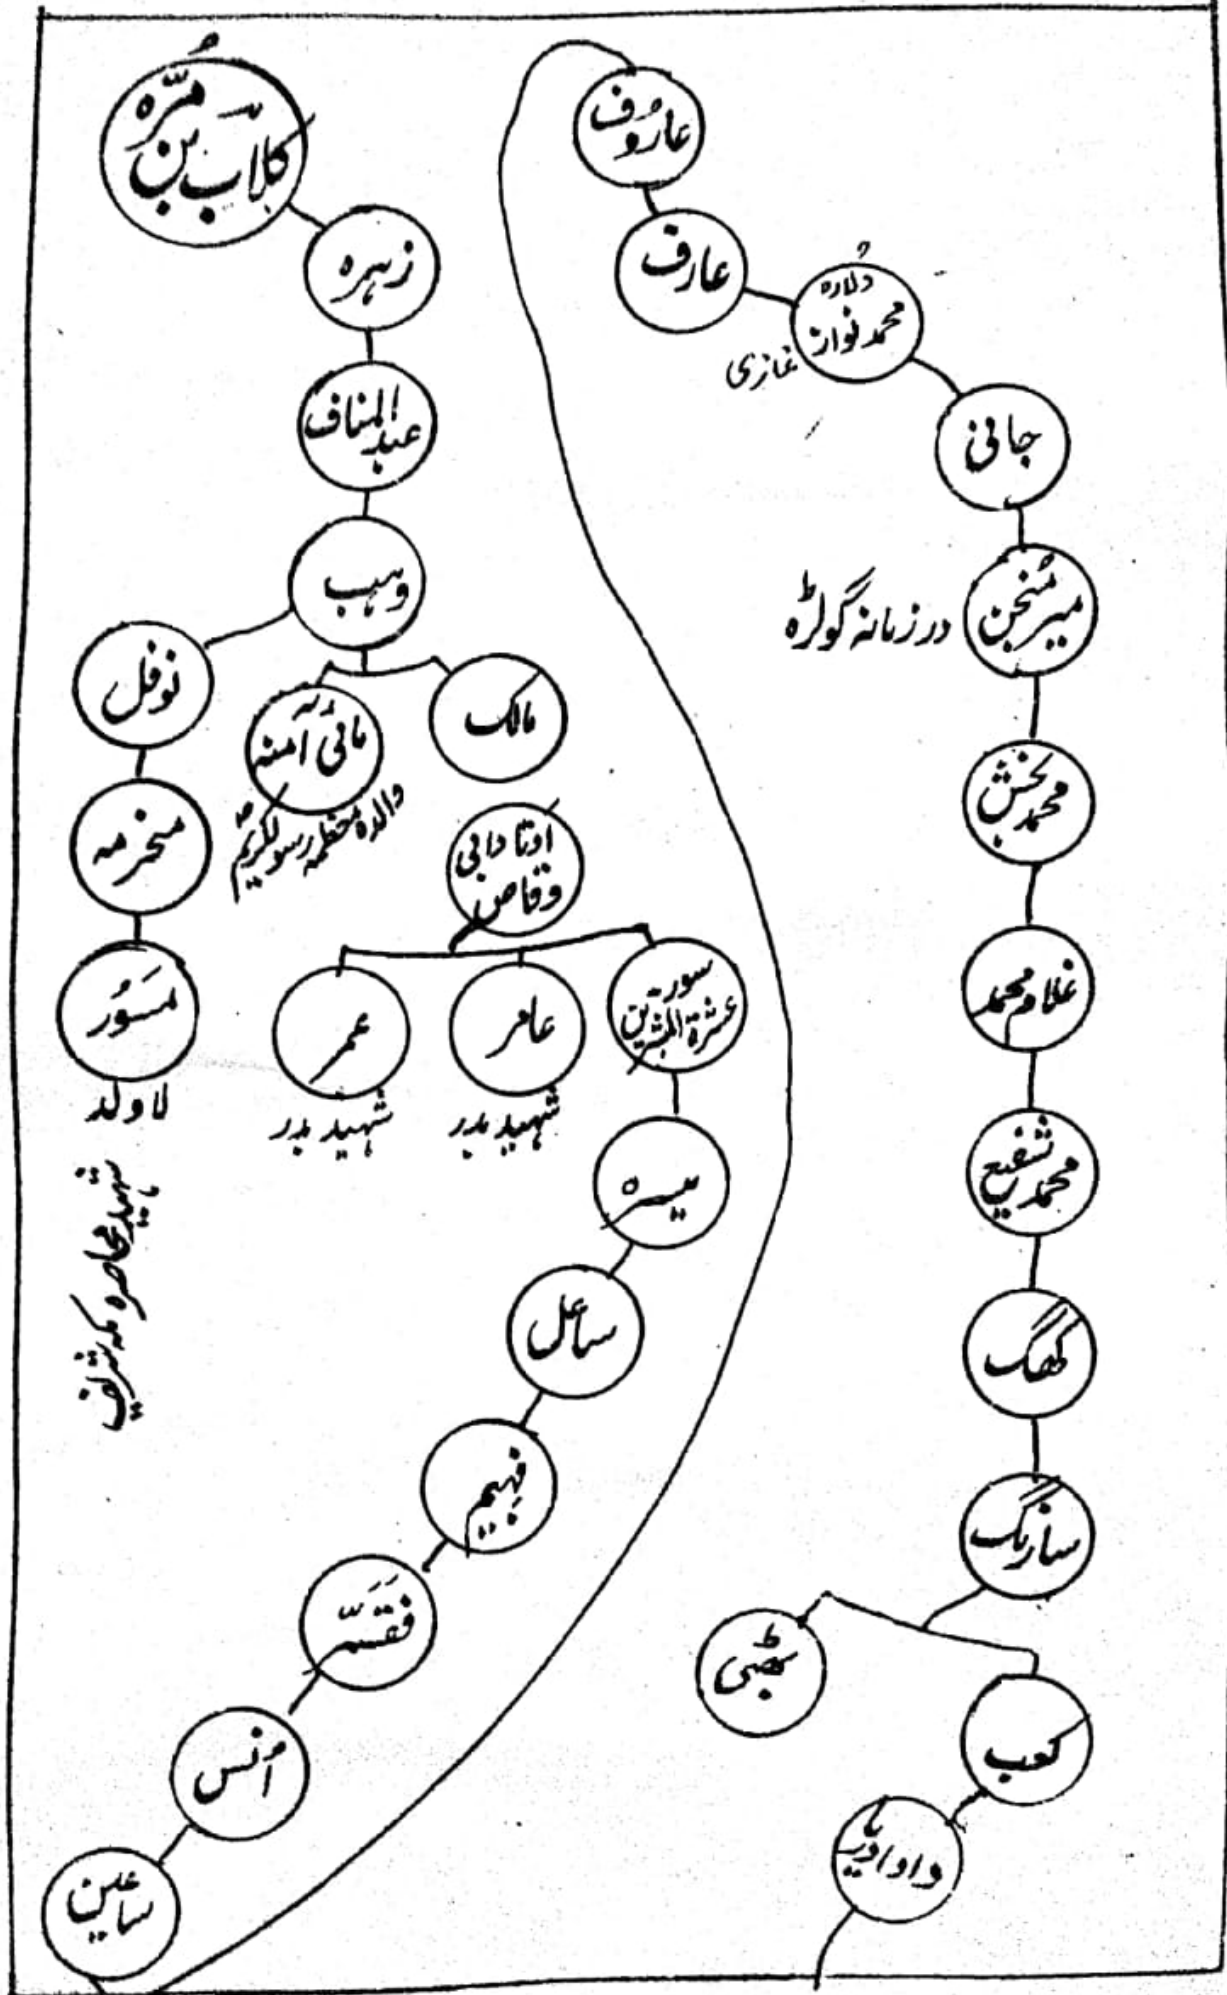 کلاب بن مُرّہ
زہرہ
عبدالمناف
وہب
نوفل
مائی آمنہ
والدہ معظمہ رسول کریمؐ
مالک
مخرمہ
مسَوُر
لاولد
شہید محاصرہ مکہ شریف
وقاص
عمر
شہید بدر
عامر
شہید بدر
عشرۃ المبشرین
میسرہ
ساعل
فہیم
اُنس
ساعین
عارُوف
عارف
دُلارہ
محمد نواز
غازی
جانی
میر مُنجن
در زمانہ گولڑہ
محمد بخش
غلام محمد
محمد شفیع
کھگ
سارنگ
بھٹی
کعب